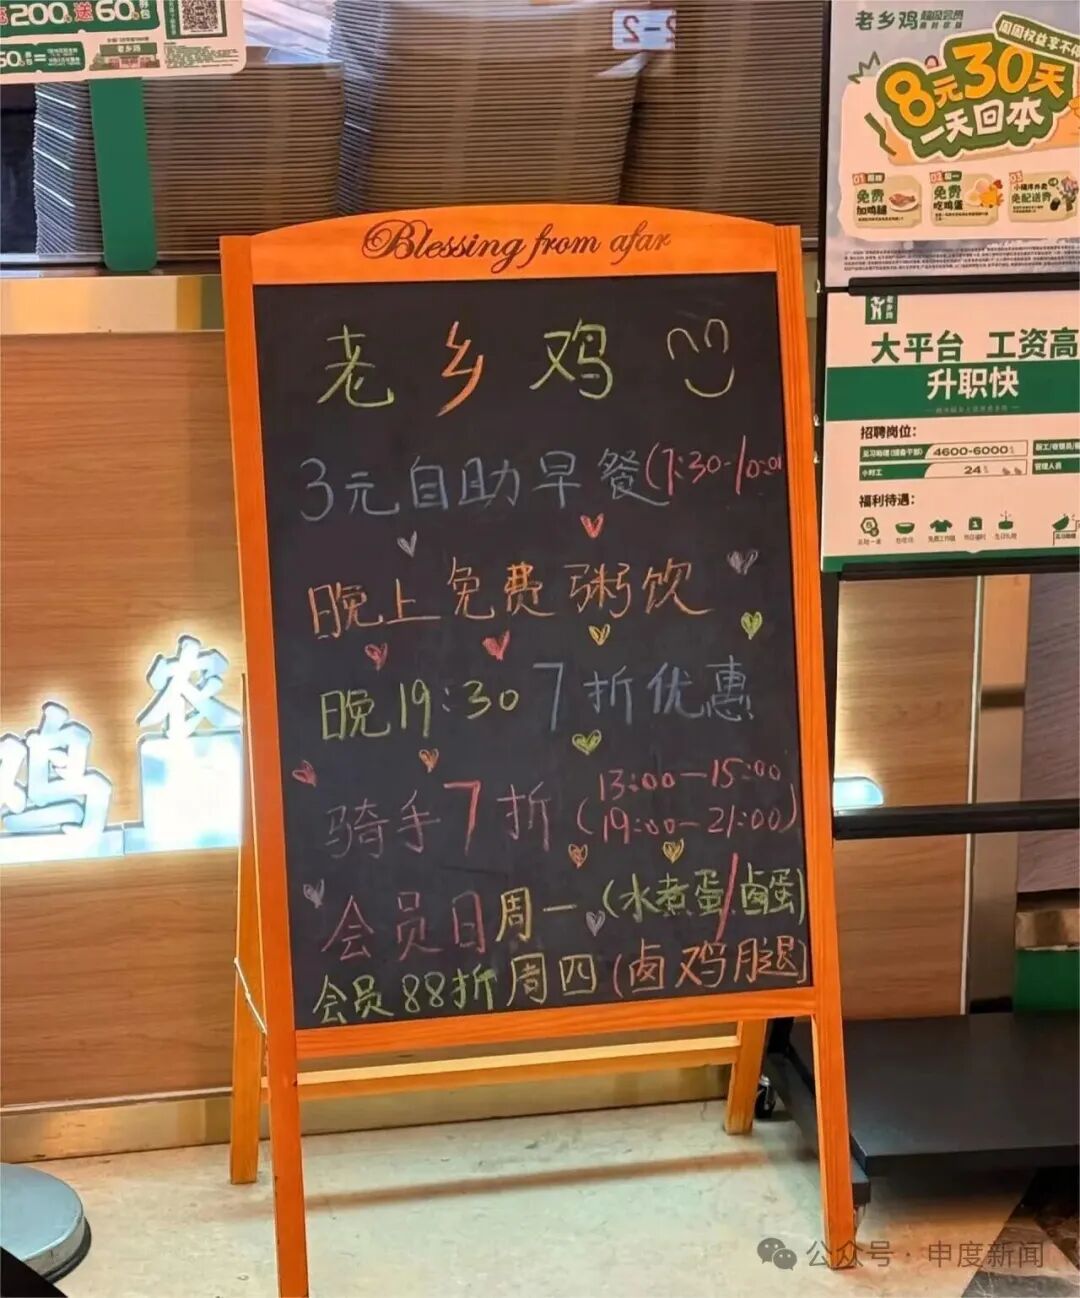 200 送 60
老乡鸡
2-2
Blessing from afar
老乡鸡
3元自助早餐(7:30-10:00
晚上免费粥饮
晚19:30 7折优惠
骑手7折(13:00-15:00
19:00-21:00)
会员日周一(水煮蛋/卤蛋)
会员88折周四(卤鸡腿)
鸡 农
老乡鸡 超级会员
周周权益享不停
8元30天
一天回本
01
免费
加鸡腿
02
免费
吃鸡蛋
03
免配送费
老乡鸡
大平台 工资高
升职快
招聘岗位：
4600-6000
小时工
24
管理人员
福利待遇：
公众号·申度新闻